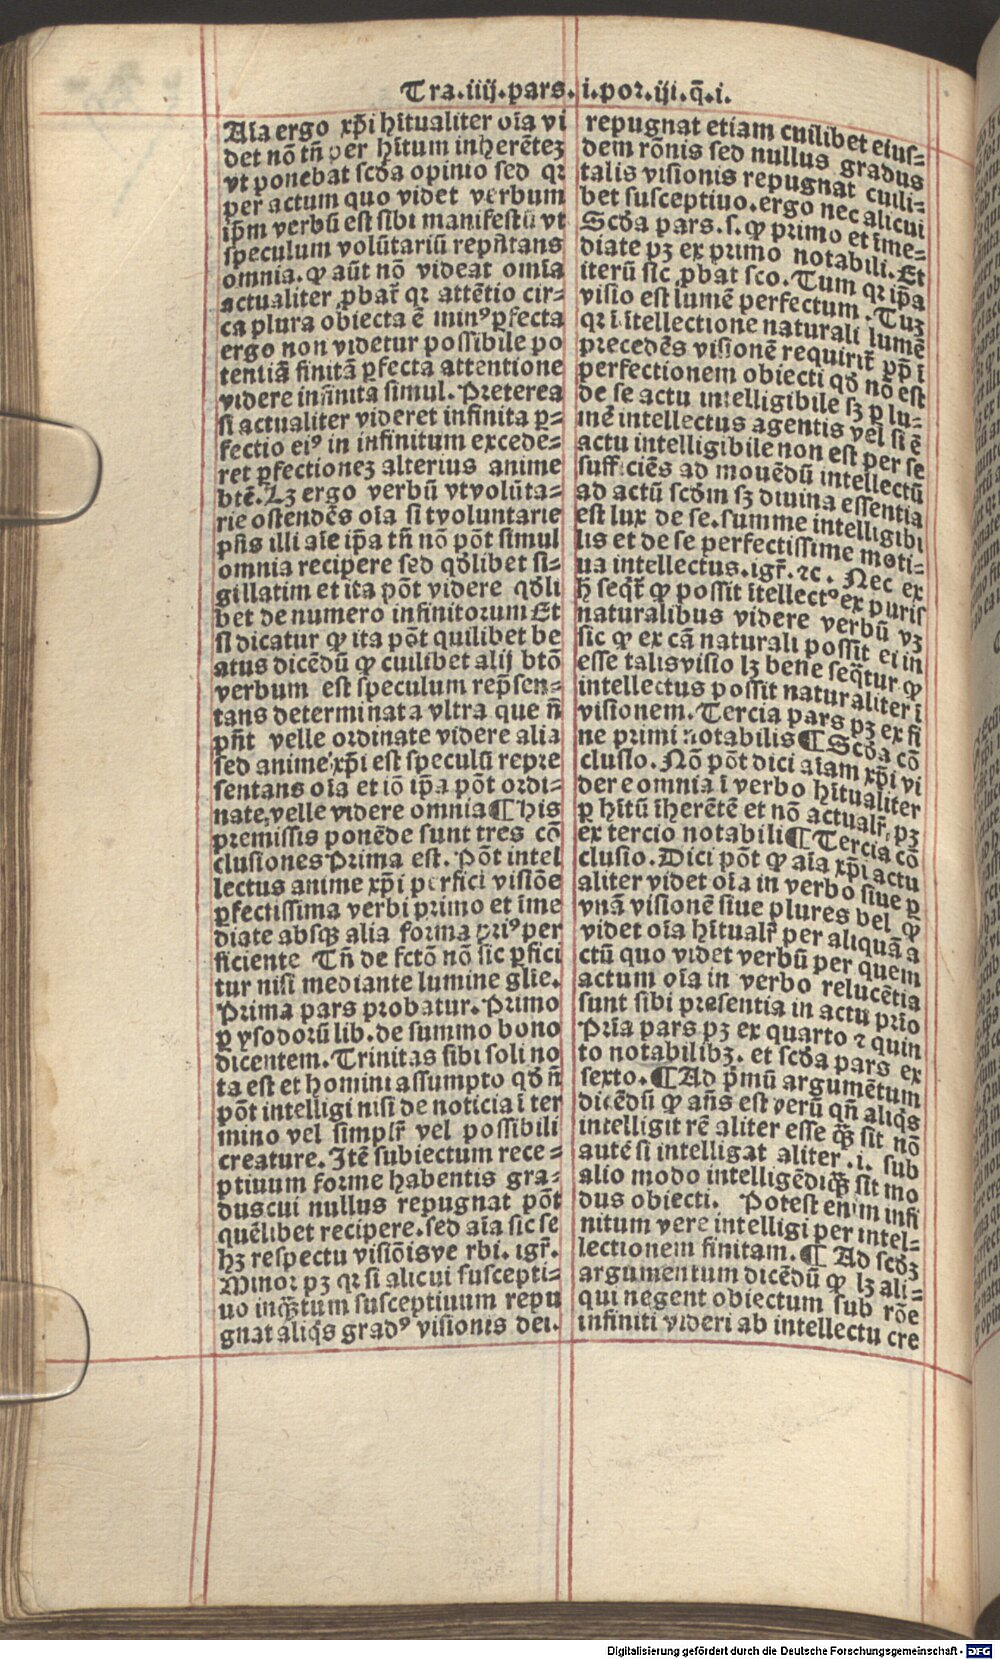 Tra.iiij.pars.i.por.iij.q̄.i.
Aīa ergo xp̄i hītualiter oīa vi
det nō tñ per hītum inherētez
vt ponebat scďa opinio sed qꝛ
per actum quo videt verbum
ip̄m verbū est sibi manifestū vt
speculum volūtariū rep̄ñtans
omnia. ꝙ aūt nō videat omīa
actualiter ꝓbat̄ qꝛ attētio cir-
ca plura obiecta ē minꝰ ꝑfecta
ergo non videtur possibile po
tentiā finitā ꝑfecta attentione
videre infinita simul. Preterea
si actualiter videret infinita ꝑ-
fectio eiꝰ in infinitum excede-
ret ꝑfectionez alterius anime
btē. Lꝫ ergo verbū vtvolūta-
rie ostendēs oīa si tvoluntarie
pñs illi aīe ip̄a tñ nō pōt simul
omnia recipere sed qďlibet si-
gillatim et ita pōt videre qďli
bet de numero infinitorum Et
si dicatur ꝙ ita pōt quilibet be
atus dicēdū ꝙ cuilibet alij btō
verbum est speculum rep̄sen-
tans determinata vltra que ñ
pñt velle ordinate videre alia
sed anime xp̄i est speculū repre
sentans oīa et iō ip̄a pōt ordi-
nate, velle videre omnia¶ His
premissis ponēde sunt tres cō
clusiones Prima est. Pōt intel
lectus anime xp̄i perfici visiōe
ꝑfectissima verbi primo et īme
diate absqꝫ alia forma priꝰ per
ficiente Tñ de fctō nō sic ꝑfici
tur nisi mediante lumine glīe.
Prima pars probatur. Primo
ꝑ ysodorū lib. de summo bono
dicentem. Trinitas sibi soli no
ta est et homini assumpto qď ñ
pōt intelligi nisi de noticia ī ter
mino vel simplr̄ vel possibili
creature. Itē subiectum rece-
ptiuum forme habentis gra-
duscui nullus repugnat pōt
quēlibet recipere. sed aīa sic se
hꝫ respectu visiōisve rbi. igr̄.
Minor pꝫ qꝛ si alicui suscepti-
uo inqꝫtum susceptiuum repu
gnat aliq̄s gradꝰ visionis dei.
repugnat etiam cuilibet eius-
dem rōnis sed nullus gradus
talis visionis repugnat cuili-
bet susceptiuo. ergo nec alicui
Scďa pars. s. ꝙ primo et īme-
diate pꝫ ex primo notabili. Et
iterū sic ꝓbat sco. Tum qꝛ ip̄a
visio est lumē perfectum. Tuꝫ
qꝛ ī ītellectione naturali lumē
precedēs visionē requirit̄ pp̄ ī
perfectionem obiecti qď nō est
de se actu intelligibile sꝫ ꝑ lu-
mē intellectus agentis vel si ē
actu intelligibile non est per se
sufficiēs ad mouēdū intellectū
ad actū scďm sꝫ diuina essentia
est lux de se. summe intelligibi
lis et de se perfectissime moti-
ua intellectus. igr̄. ⁊c. Nec ex
h̄ seqr̄ ꝙ possit ītellectꝰ ex puris
naturalibus videre verbū vꝫ
sic ꝙ ex cā naturali possit ei in
esse talisvisio lꝫ bene seq̄tur ꝙ
intellectus possit naturaliter ī
visionem. Tercia pars pꝫ ex fi
ne primi notabilis¶ Scďa cō
clusio. Nō pōt dici aīam xp̄i vi
dere omnia ī verbo hītualiter
ꝑ hītū īherētē et nō actualr̄, pꝫ
ex tercio notabili¶ Tercia cō
clusio. Dici pōt ꝙ aīa xp̄i actu
aliter videt oīa in verbo siue ꝑ
vnā visionē siue plures vel ꝙ
videt oīa hītualr̄ per aliquā a
ctū quo videt verbū per quem
actum oīa in verbo relucētia
sunt sibi presentia in actu prīo
Prīa pars pꝫ ex quarto ⁊ quin
to notabilibꝫ. et scďa pars ex
sexto. ¶ Ad p̄mū argumētum
dicēdū ꝙ añs est verū qñ aliq̄s
intelligit rē aliter esse qꝫ̄ sit nō
autē si intelligat aliter .i. sub
alio modo intelligēdiqꝫ̄ sit mo
dus obiecti. Potest enim infi
nitum vere intelligi per intel-
lectionem finitam. ¶ Ad scďꝫ
argumentum dicēdū ꝙ lꝫ ali-
qui negent obiectum sub rōe
infiniti videri ab intellectu cre
Digitalisierung gefördert durch die Deutsche Forschungsgemeinschaft - DFG